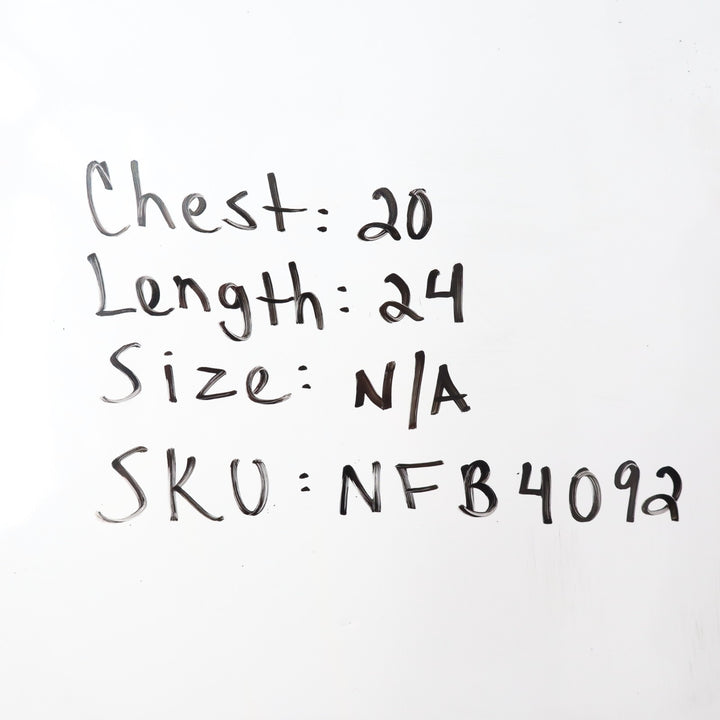 Chest: 20
Length: 24
Size: N/A
SKU: NFB4092